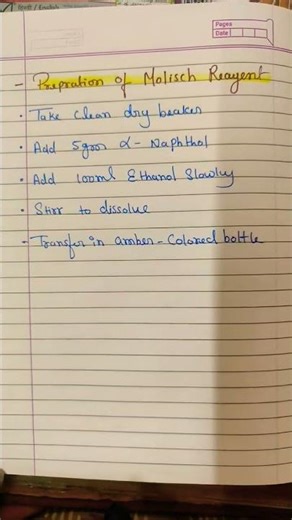 Pages
Date
- Prepration of Molisch Reagent
• Take clean dry beaker
• Add 5gm α - Naphthol
• Add 100ml Ethanol Slowly
• Stirr to dissolve
- Transfer in amber - Colored bottle